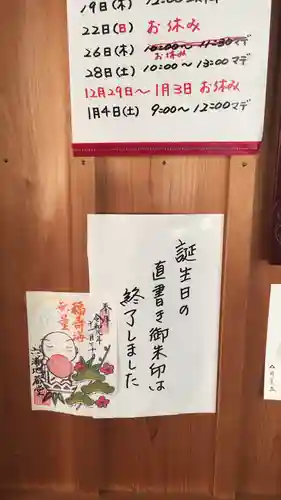 19日(木)
22日(日) お休み
26日(木) 10:00〜11:30マデ
お休み
28日(土) 10:00〜13:00マデ
12月29日〜1月3日 お休み
1月4日(土) 9:00〜12:00マデ
誕生日の
直書き御朱印は
終了しました
奉拝
福寿海
無量
六浦地蔵堂